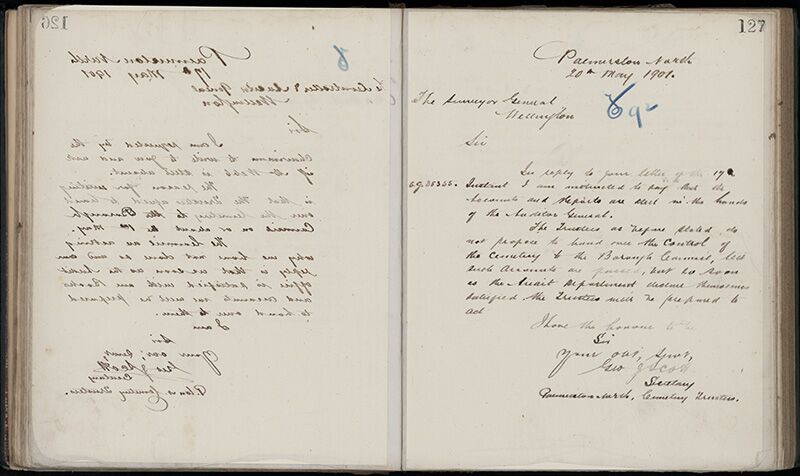 126
Palmerston North
17th May 1901
The Controller & Auditor General
Wellington
Sir
I am requested by the
Chairman to write to you and ask
if Mr Webb is still absent.
The reason for writing
is that the Trustees agreed to hand
over the Cemetery to the Borough
Council on or about the 1st May.
The Council are asking
why we have not done so and our
reply is that as soon as the Audit
office is satisfied with our Books
and accounts we will be prepared
to hand over to them
I am
Sir
Your obt; Servt,
Geo J Scott
Secretary
Cemetery Trustees.
127
Palmerston North
20th May 1901.
The Surveyor General
Wellington
Sir
In reply to your letter of the 17th
Instant I am instructed to say that the
Accounts and Reports are still in the hands
of the Auditor General.
The Trustees as before stated, do
not propose to hand over the Control of
the Cemetery to the Borough Council, till
such Accounts are passed, but as soon
as the Audit Department declare themselves
satisfied the Trustees will be prepared to
act
I have the honour to be
Sir
Your Obt; Servt,
Geo J Scott
Secretary
Palmerston North, Cemetery Trustees.